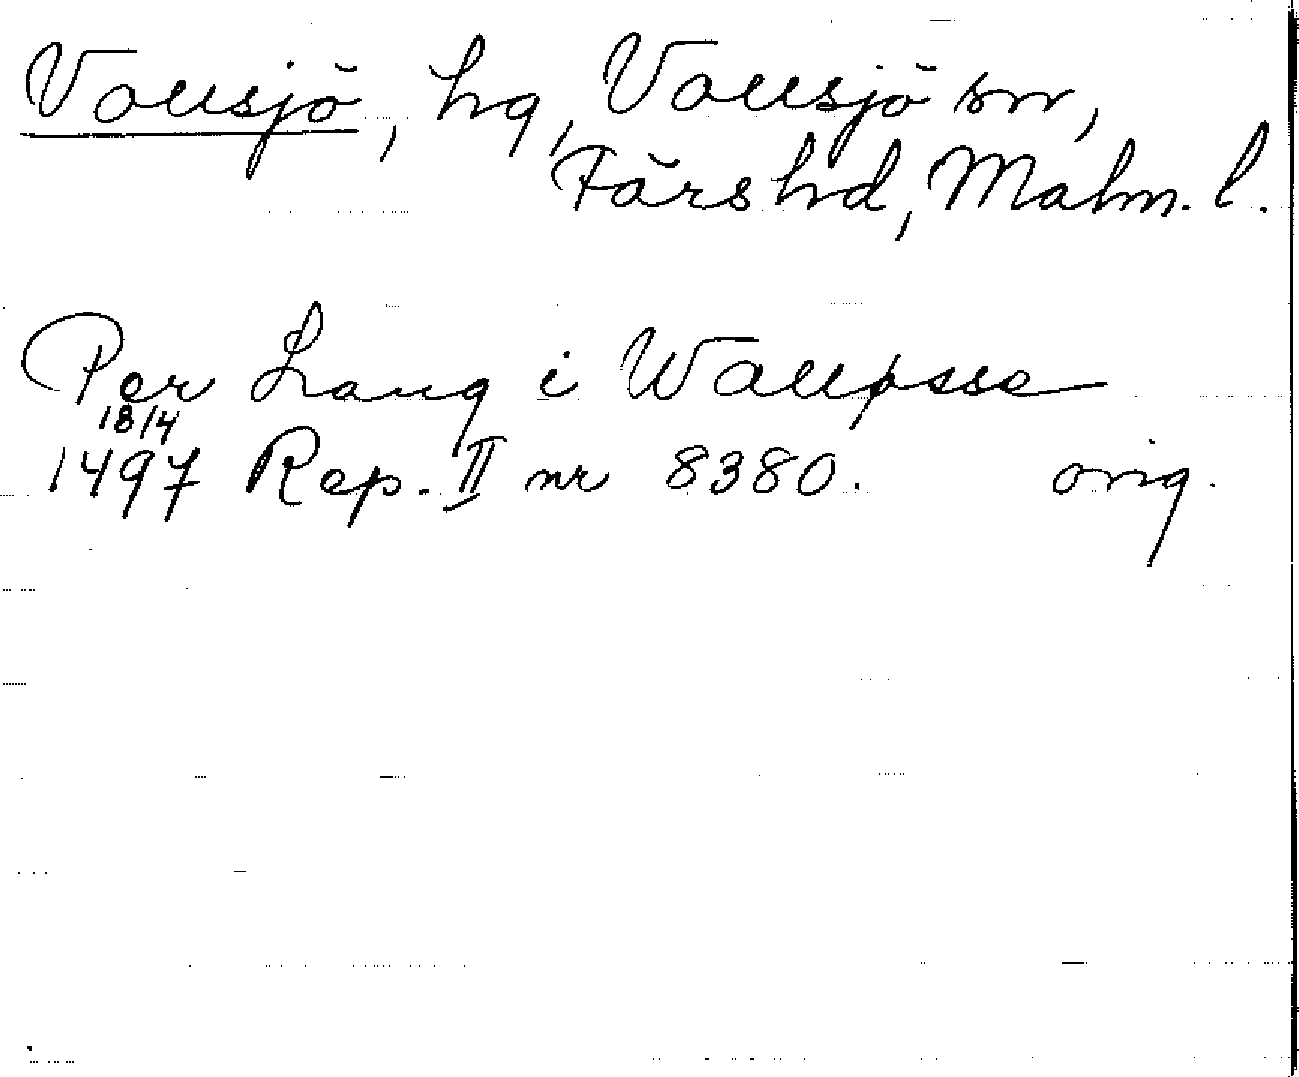 Vollsjö, hg, Vollsjö sn,
Färs hd, Malm. l.
Per Lang i Walløsse
18/4
1497 Rep. II nr 8380. orig.